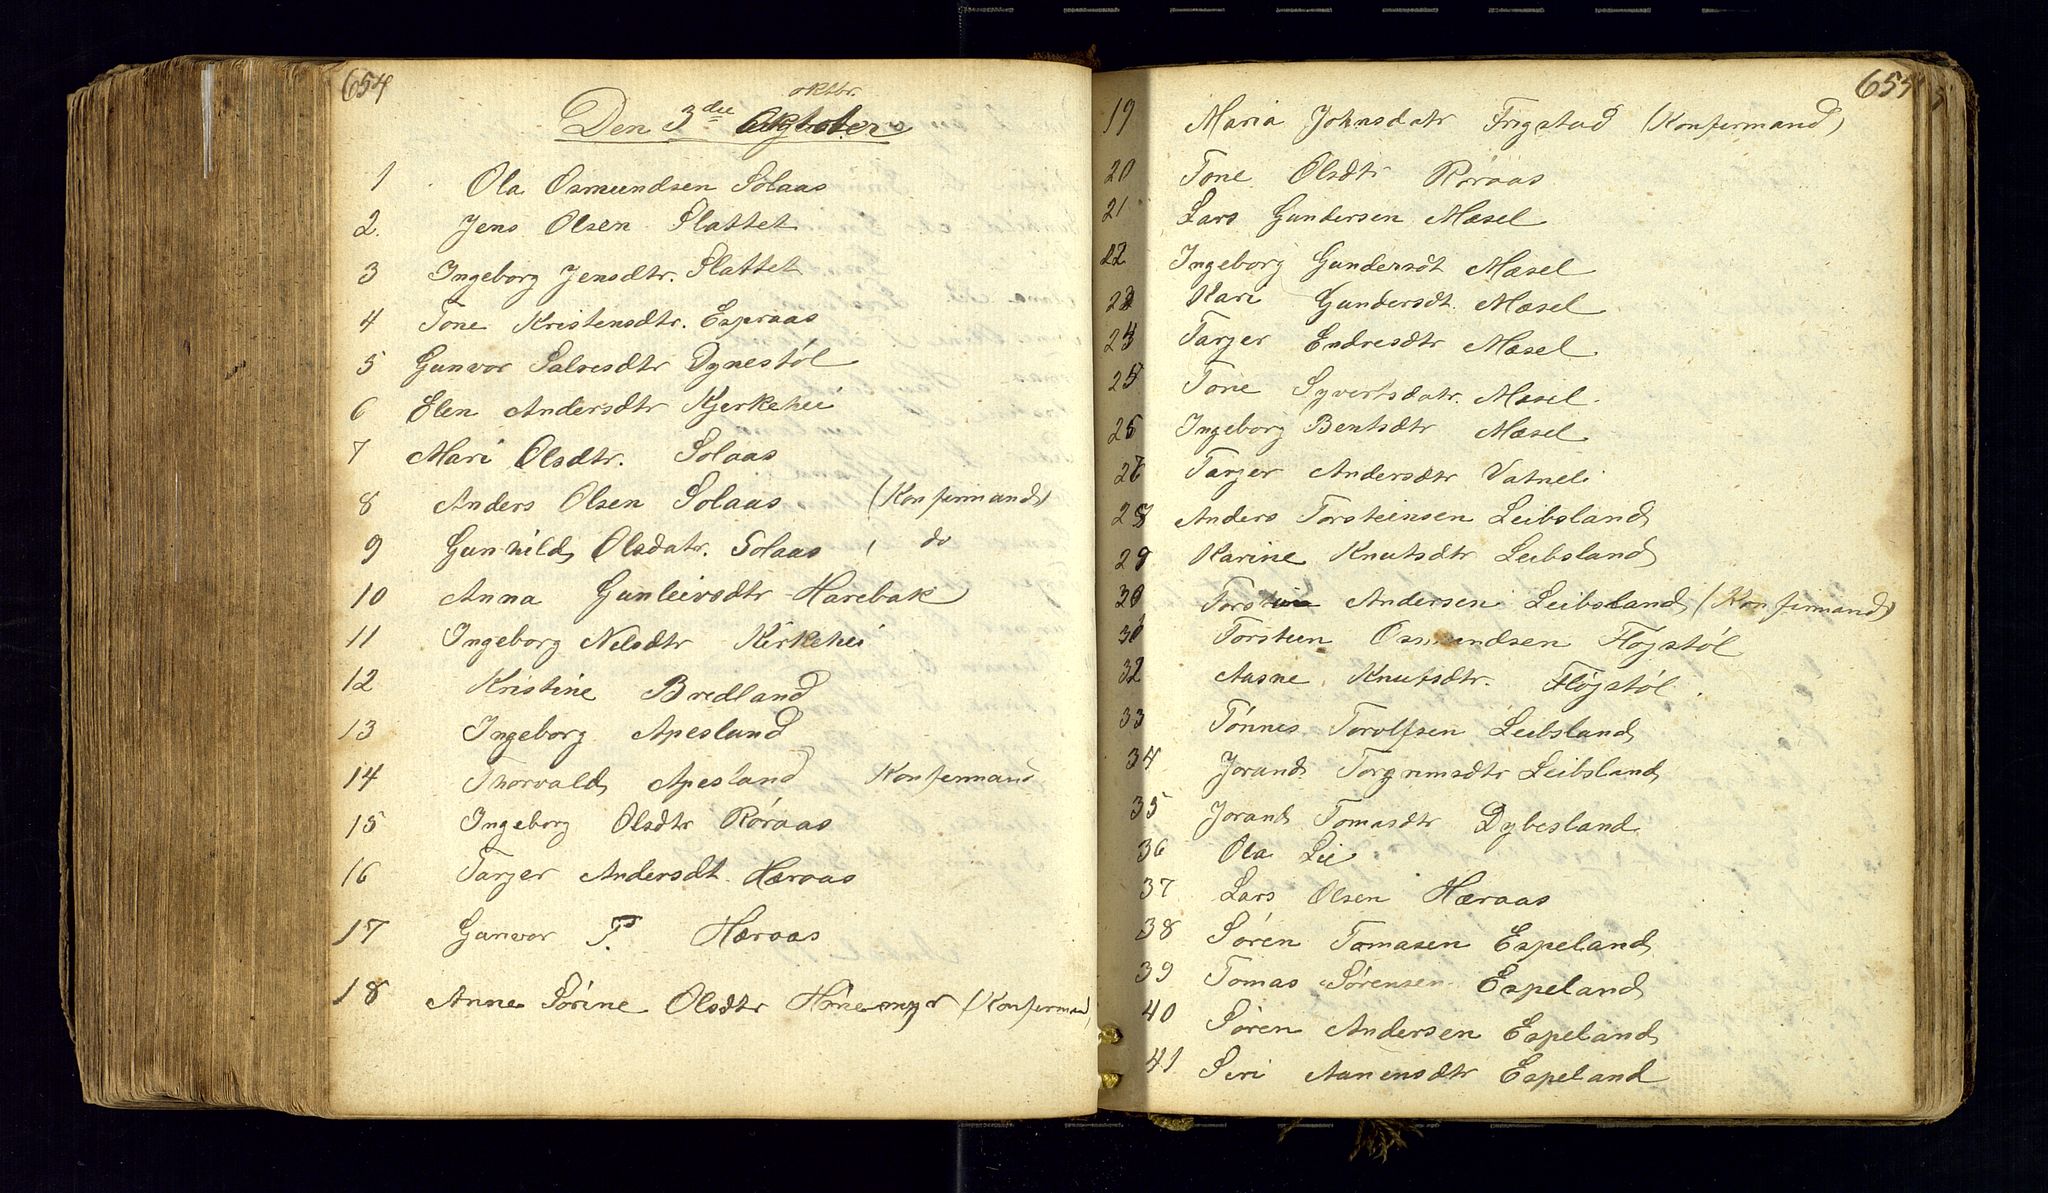 654
oktbr.
Den 3die
1 Ola Osmundsen Solaas
2. Jens Olsen Slattet
3 Ingeborg Jensdtr. Slattet
4 Tone Kristensdtr. Espraas
5 Gunvor Salvesdtr Dynestöl
6 Elen Andersdtr Kjerkehei
7 Mari Olsdtr. Solaas
8 Anders Olsen Solaas (Konfermand)
9 Gunhild Olsdatr. Solaas, do
10 Anna Gunleivsdtr Harebak
11 Ingeborg Nelsdtr Kirkehei
12 Kristine Bredland
13 Ingeborg Apesland
14 Thorvald Apesland Konfermand
15 Ingeborg Olsdtr Röraas
16 Tarjer Andersdt. Hæraas
17 Gunvor T. Hæraas
18 Anne Sörine Olsdtr Hönemyr (Konfermand)
655
19 Maria Johnsdatr Frigstad (Konfermand)
20 Tone Olsdtr Röraas
21 Lars Gundersen Mæsel
22 Ingeborg Gundersdt Mæsel
23 Kari Gundersdt. Mæsel
24 Tarjer Endresdtr Mæsel
25 Tone Syvertsdatr. Mæsel.
26 Ingeborg Bentsdtr Mæsel
27 Tarjer Andersdtr Vatneli
28 Anders Torsteinsen Leibsland
29 Karine Knutsdtr Leibsland
30 Torstein Andersen Leibsland (Konfermand)
31 Torstein Osmundsen Flöjstöl
32 Aasne Knutsdtr. Flöjstöl.
33 Tönnes Torolfsen Leibsland
34 Jorand Torgrimsdtr Leibsland
35 Jorand Tomasdtr Dybesland
36 Ola Lie
37 Lars Olsen Hæraas
38 Sören Tomasen Espeland
39 Tomas Sörensen Espeland
40 Sören Andersen Espeland
41 Siri Aanensdtr Espeland